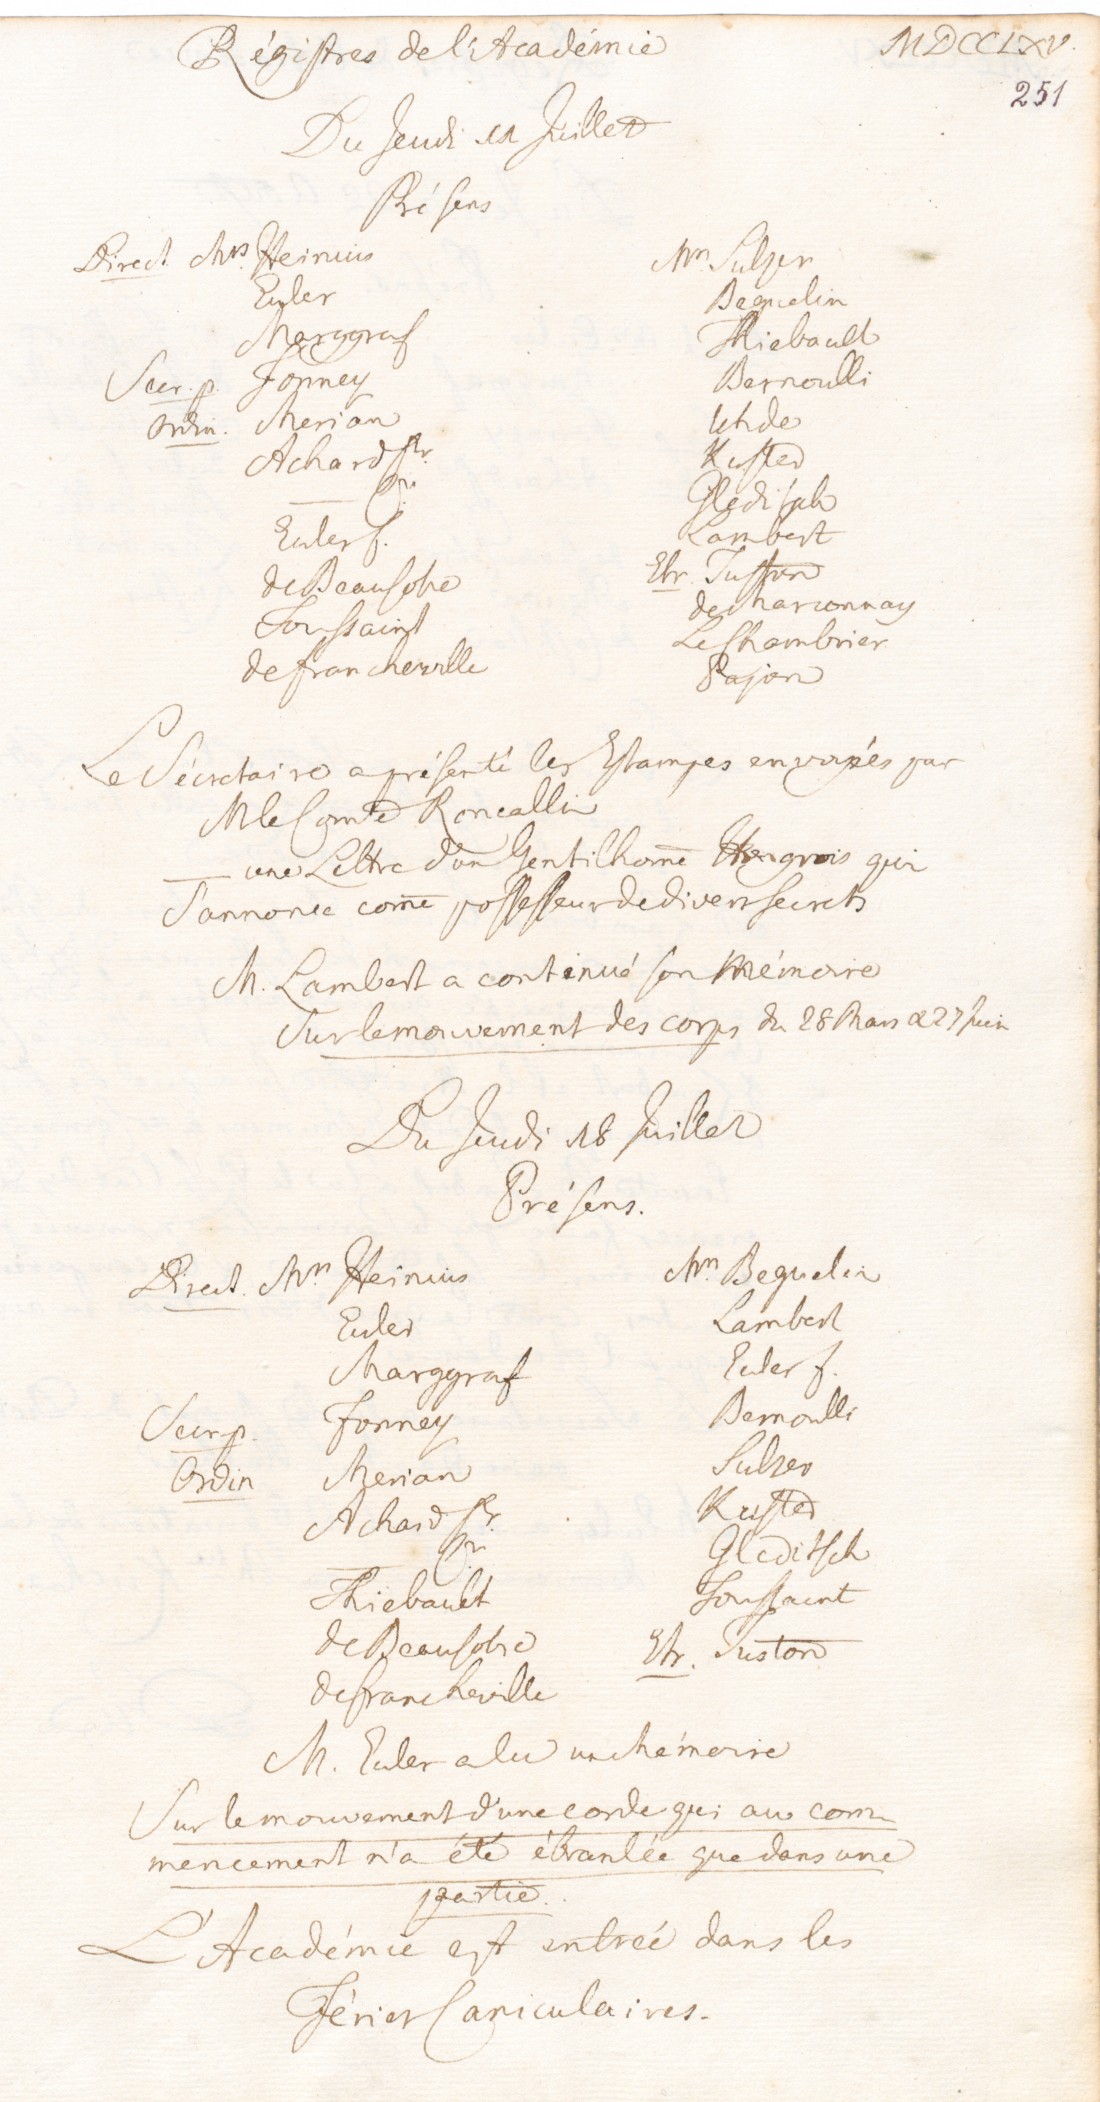 Régistres de l'Académie
MDCCLXV.
251
Du Jeudi 11 Juillet
Présens
Direct. Mrs. Heinius
Euler
Marggraf
Secr. p. Formey
Ordin. Merian
Achard Sr.
— Jr.
Euler f.
de Beausobre
Toussaint
de francheville
Mrs. Sulzer
Beguelin
Thiebault
Bernoulli
Uhde
Kuster
Gleditsch
Lambert
Etr. Juston
de Marconnay
Le Chambrier
Pajon
Le Sécretaire a présenté les Estampes envoyés par
M le Comte Roncalli
— une Lettre d'un Gentilhome Hongrois qui
s'annonce come possesseur de divers secrets
M. Lambert a continué son Mémoire
Sur le mouvement des corps du 28 Mars & 27 Juin
Du Jeudi 18 Juillet
Présens.
Direct. Mrs Heinius
Euler
Marggraf
Secr. p. Formey
Ordin Merian
Achard Sr.
— Jr.
Thiebault
de Beausobre
de francheville
Mrs. Beguelin
Lambert
Euler f.
Bernoulli
Sulzer
Kuster
Gleditsch
Toussaint
Etr. Juston
M. Euler a lu un Mémoire
Sur le mouvement d'une corde qui au com
mencement n'a été ébranlée que dans une
partie.
L'Académie est entrée dans les
Féries Caniculaires.